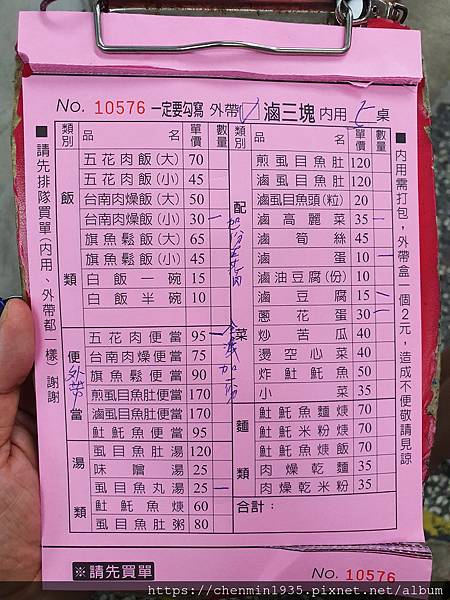 No. 10576 一定要勾寫 外帶 滷三塊 內用 桌
■請先排隊買單(內用、外帶都一樣)謝謝
類別 品名 單價 數量
飯類
五花肉飯(大) 70
五花肉飯(小) 45
台南肉燥飯(大) 50
台南肉燥飯(小) 30 一
旗魚鬆飯(大) 65
旗魚鬆飯(小) 45
白飯一碗 15
白飯半碗 10
便當
外帶
五花肉便當 95 一
台南肉燥便當 75
旗魚便當 90
煎虱目魚肚便當 170
滷虱目魚肚便當 170
魠魚便當 95
湯類
虱目魚肚湯 120
味噌湯 25
虱目魚丸湯 25 一
魠魚焿 60
虱目魚肚粥 80
類別 品名 單價 數量
配菜
煎虱目魚肚 120
滷虱目魚肚 120
滷虱目魚頭(粒) 20
滷高麗菜 35 一
滷筍絲 45
滷蛋 10 一
滷油豆腐(份) 10
滷豆腐 15 一
蔥花蛋 30 一
炒苦瓜 40
燙空心菜 40
炸魠魚 50
小菜 35
麵類
魠魚麵焿 70
魠米粉焿 70
魠魚焿飯 70
肉燥乾麵 35
肉燥乾米粉 35
合計：
■內用需打包，外帶盒一個2元，造成不便敬請見諒
※請先買單
No. 10576
https://chenmin1935.pixnet.net/album